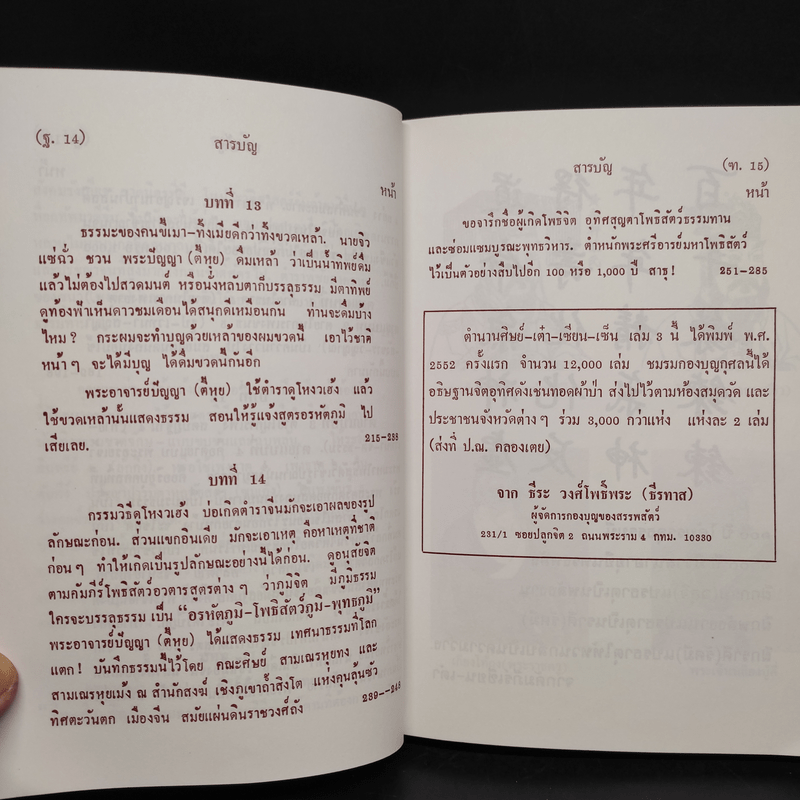 (ฐ. 14)
สารบัญ
หน้า
บทที่ 13
ธรรมะของคนขี้เมา-ทั้งเมียดีกว่าทั้งขวดเหล้า. นายจิว
แซ่ฉั่ว ชวน พระปัญญา (ตี้หุย) ดื่มเหล้า ว่าเป็นน้ำทิพย์ดื่ม
แล้วไม่ต้องไปสวดมนต์ หรือนั่งหลับตาก็บรรลุธรรม มีตาทิพย์
ดูท้องฟ้าเห็นดาวชมเดือนได้สนุกดีเหมือนกัน ท่านจะดื่มบ้าง
ไหม? กระผมจะทำบุญด้วยเหล้าของผมขวดนี้ เอาไว้ชาติ
หน้าๆ จะได้มีบุญ ได้ดื่มขวดนี้กันอีก
พระอาจารย์ปัญญา (ตี้หุย) ใช้ตำราดูโหงวเฮ้ง แล้ว
ใช้ขวดเหล้านั้นแสดงธรรม สอนให้รู้แจ้งสูตรอรหัตภูมิ ไป
เสียเลย. 215-238
บทที่ 14
กรรมวิธีดูโหงวเฮ้ง บ่อเกิดตำราจีนมักจะเอาผลของรูป
ลักษณะก่อน. ส่วนแขกอินเดีย มักจะเอาเหตุ คือหาเหตุที่ชาติ
ก่อนๆ ทำให้เกิดเป็นรูปลักษณะอย่างนี้ได้ก่อน. ดูอนุสัยจิต
ตามคัมภีร์โพธิสัตว์อวตารสูตรต่างๆ ว่าภูมิจิต มีภูมิธรรม
ใครจะบรรลุธรรม เป็น “อรหัตภูมิ-โพธิสัตว์ภูมิ-พุทธภูมิ”
พระอาจารย์ปัญญา (ตี้หุย) ได้แสดงธรรม เทศนาธรรมที่โลก
แตก! บันทึกธรรมนี้ไว้โดย คณะศิษย์ สามเณรหุยทง และ
สามเณรหุยเม้ง ณ สำนักสงฆ์ เชิงภูเขาถ้ำสิงโต แห่งคุนลุ้นซัว
ทิศตะวันตก เมืองจีน สมัยแผ่นดินราชวงศ์ถัง 239--248
สารบัญ
(ฑ. 15)
หน้า
ขอจารึกชื่อผู้เกิดโพธิจิต อุทิศสุญตาโพธิสัตว์ธรรมทาน
และซ่อมแซมบูรณะพุทธวิหาร. ตำหนักพระศรีอารย์มหาโพธิสัตว์
ไว้เป็นตัวอย่างสืบไปอีก 100 หรือ 1,000 ปี สาธุ! 251-285
ตำนานศิษย์-เต๋า-เซียน-เซ็น เล่ม 3 นี้ ได้พิมพ์ พ.ศ.
2552 ครั้งแรก จำนวน 12,000 เล่ม ชมรมกองบุญกุศลนี้ได้
อธิษฐานจิตอุทิศดังเช่นทอดผ้าป่า ส่งไปไว้ตามห้องสมุดวัด และ
ประชาชนจังหวัดต่างๆ ร่วม 3,000 กว่าแห่ง แห่งละ 2 เล่ม
(ส่งที่ ป.ณ. คลองเตย)
จาก ธีระ วงศ์โพธิ์พระ (ธีรทาส)
ผู้จัดการกองบุญของสรรพสัตว์
231/1 ซอยปลูกจิต 2 ถนนพระราม 4 กทม. 10330